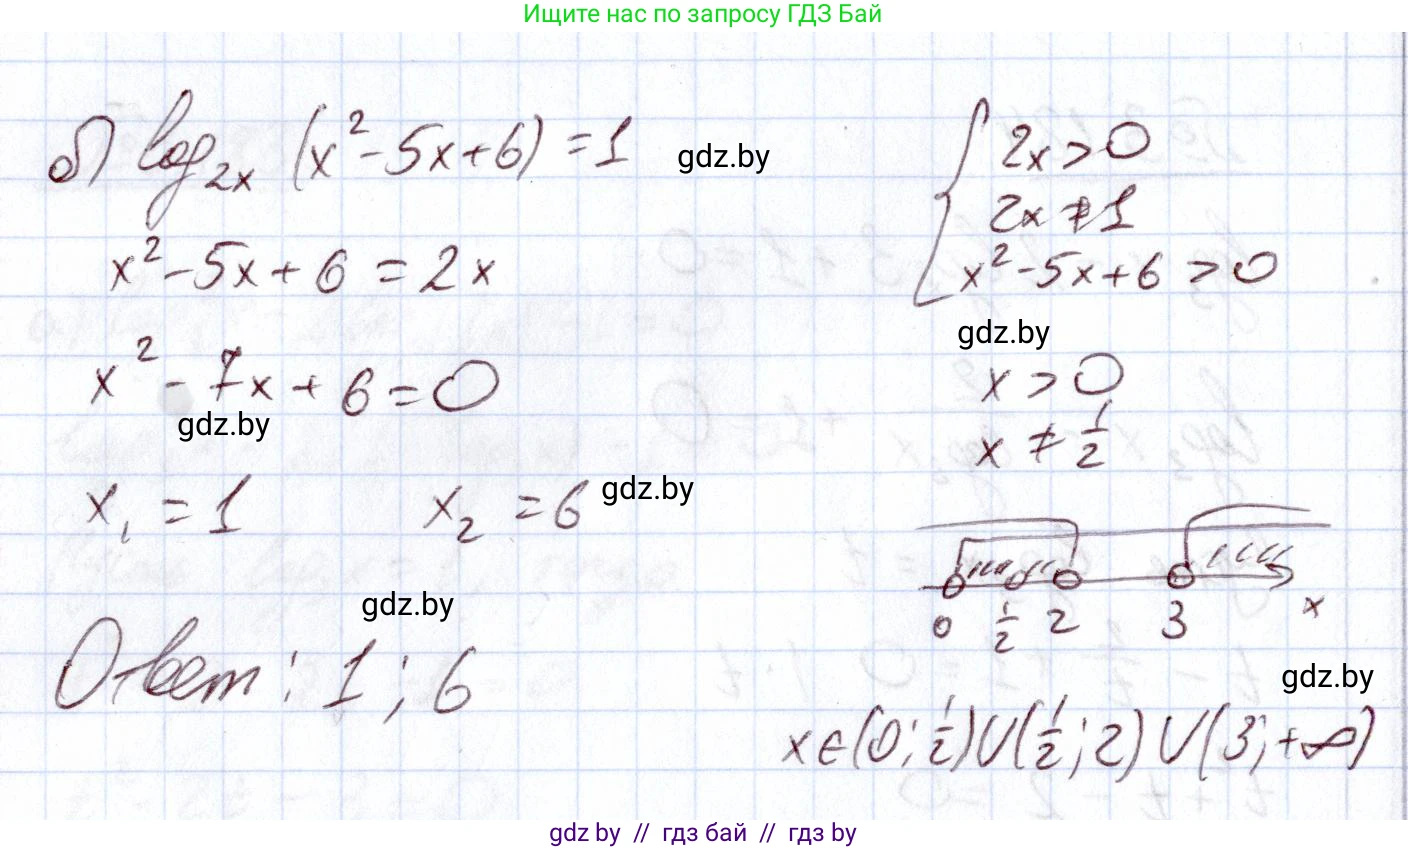 Ищите нас по запросу ГДЗ Бай
б) log₂ₓ (x² - 5x + 6) = 1
gdz.by
x² - 5x + 6 = 2x
x² - 7x + 6 = 0
gdz.by
x₁ = 1 x₂ = 6
gdz.by
gdz.by
Ответ: 1; 6
2x > 0
2x ≠ 1
x² - 5x + 6 > 0
gdz.by
x > 0
x ≠ 1/2
0 1/2 2 3 x
gdz.by
x ∈ (0; 1/2) ∪ (1/2; 2) ∪ (3; +∞)
gdz.by // гдз бай // гдз by